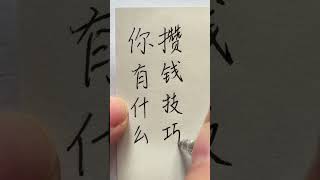 你有什么
攒钱技巧